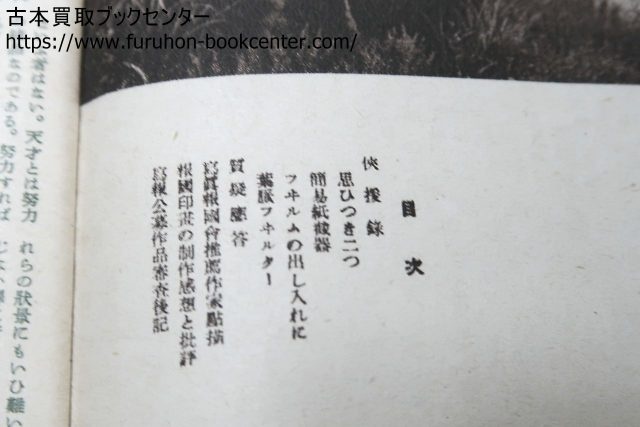 古本買取ブックセンター
https://www.furuhon-bookcenter.com/
目次
俠援錄
思ひつき二つ
簡易紙截器
フヰルムの出し入れに
葉脈フヰルター
質疑應答
寫眞報國會推薦作家點描
報國印畫の制作感想と批評
寫報公募作品審査後記
者はない。天才とは努力
なのである。努力すれば
れらの狀景にもいひ難い